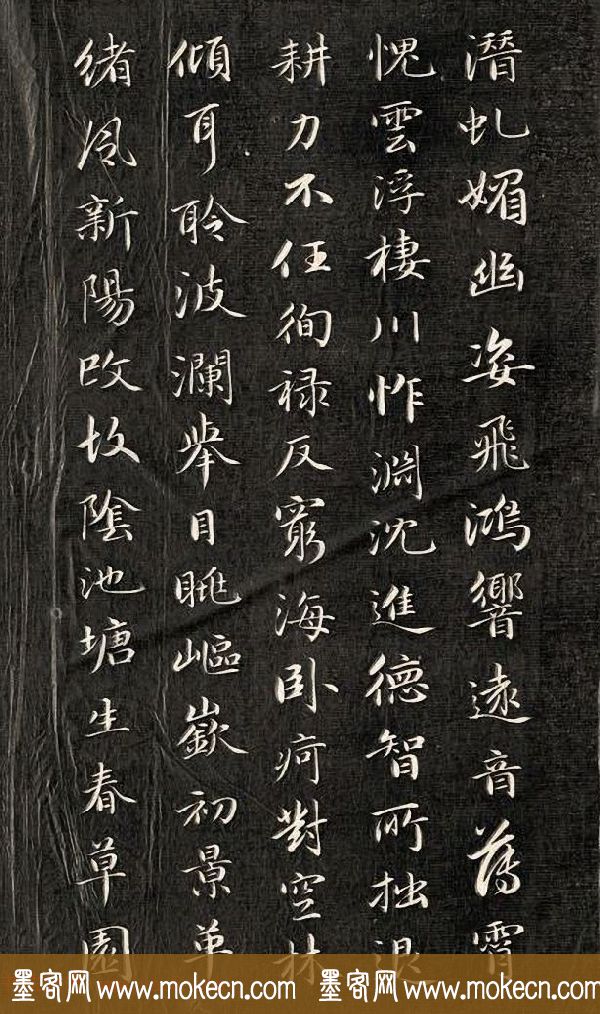 潛虬媚幽姿飛鴻響遠音薄霄
愧雲浮棲川怍淵沈進德智所拙退
耕力不任徇禄反窮海卧疴對空林
傾耳聆波瀾舉目眺嶇嶔初景革
緒風新陽改故陰池塘生春草園
墨客网 www.mokecn.com 墨客网 www.mokecn.com